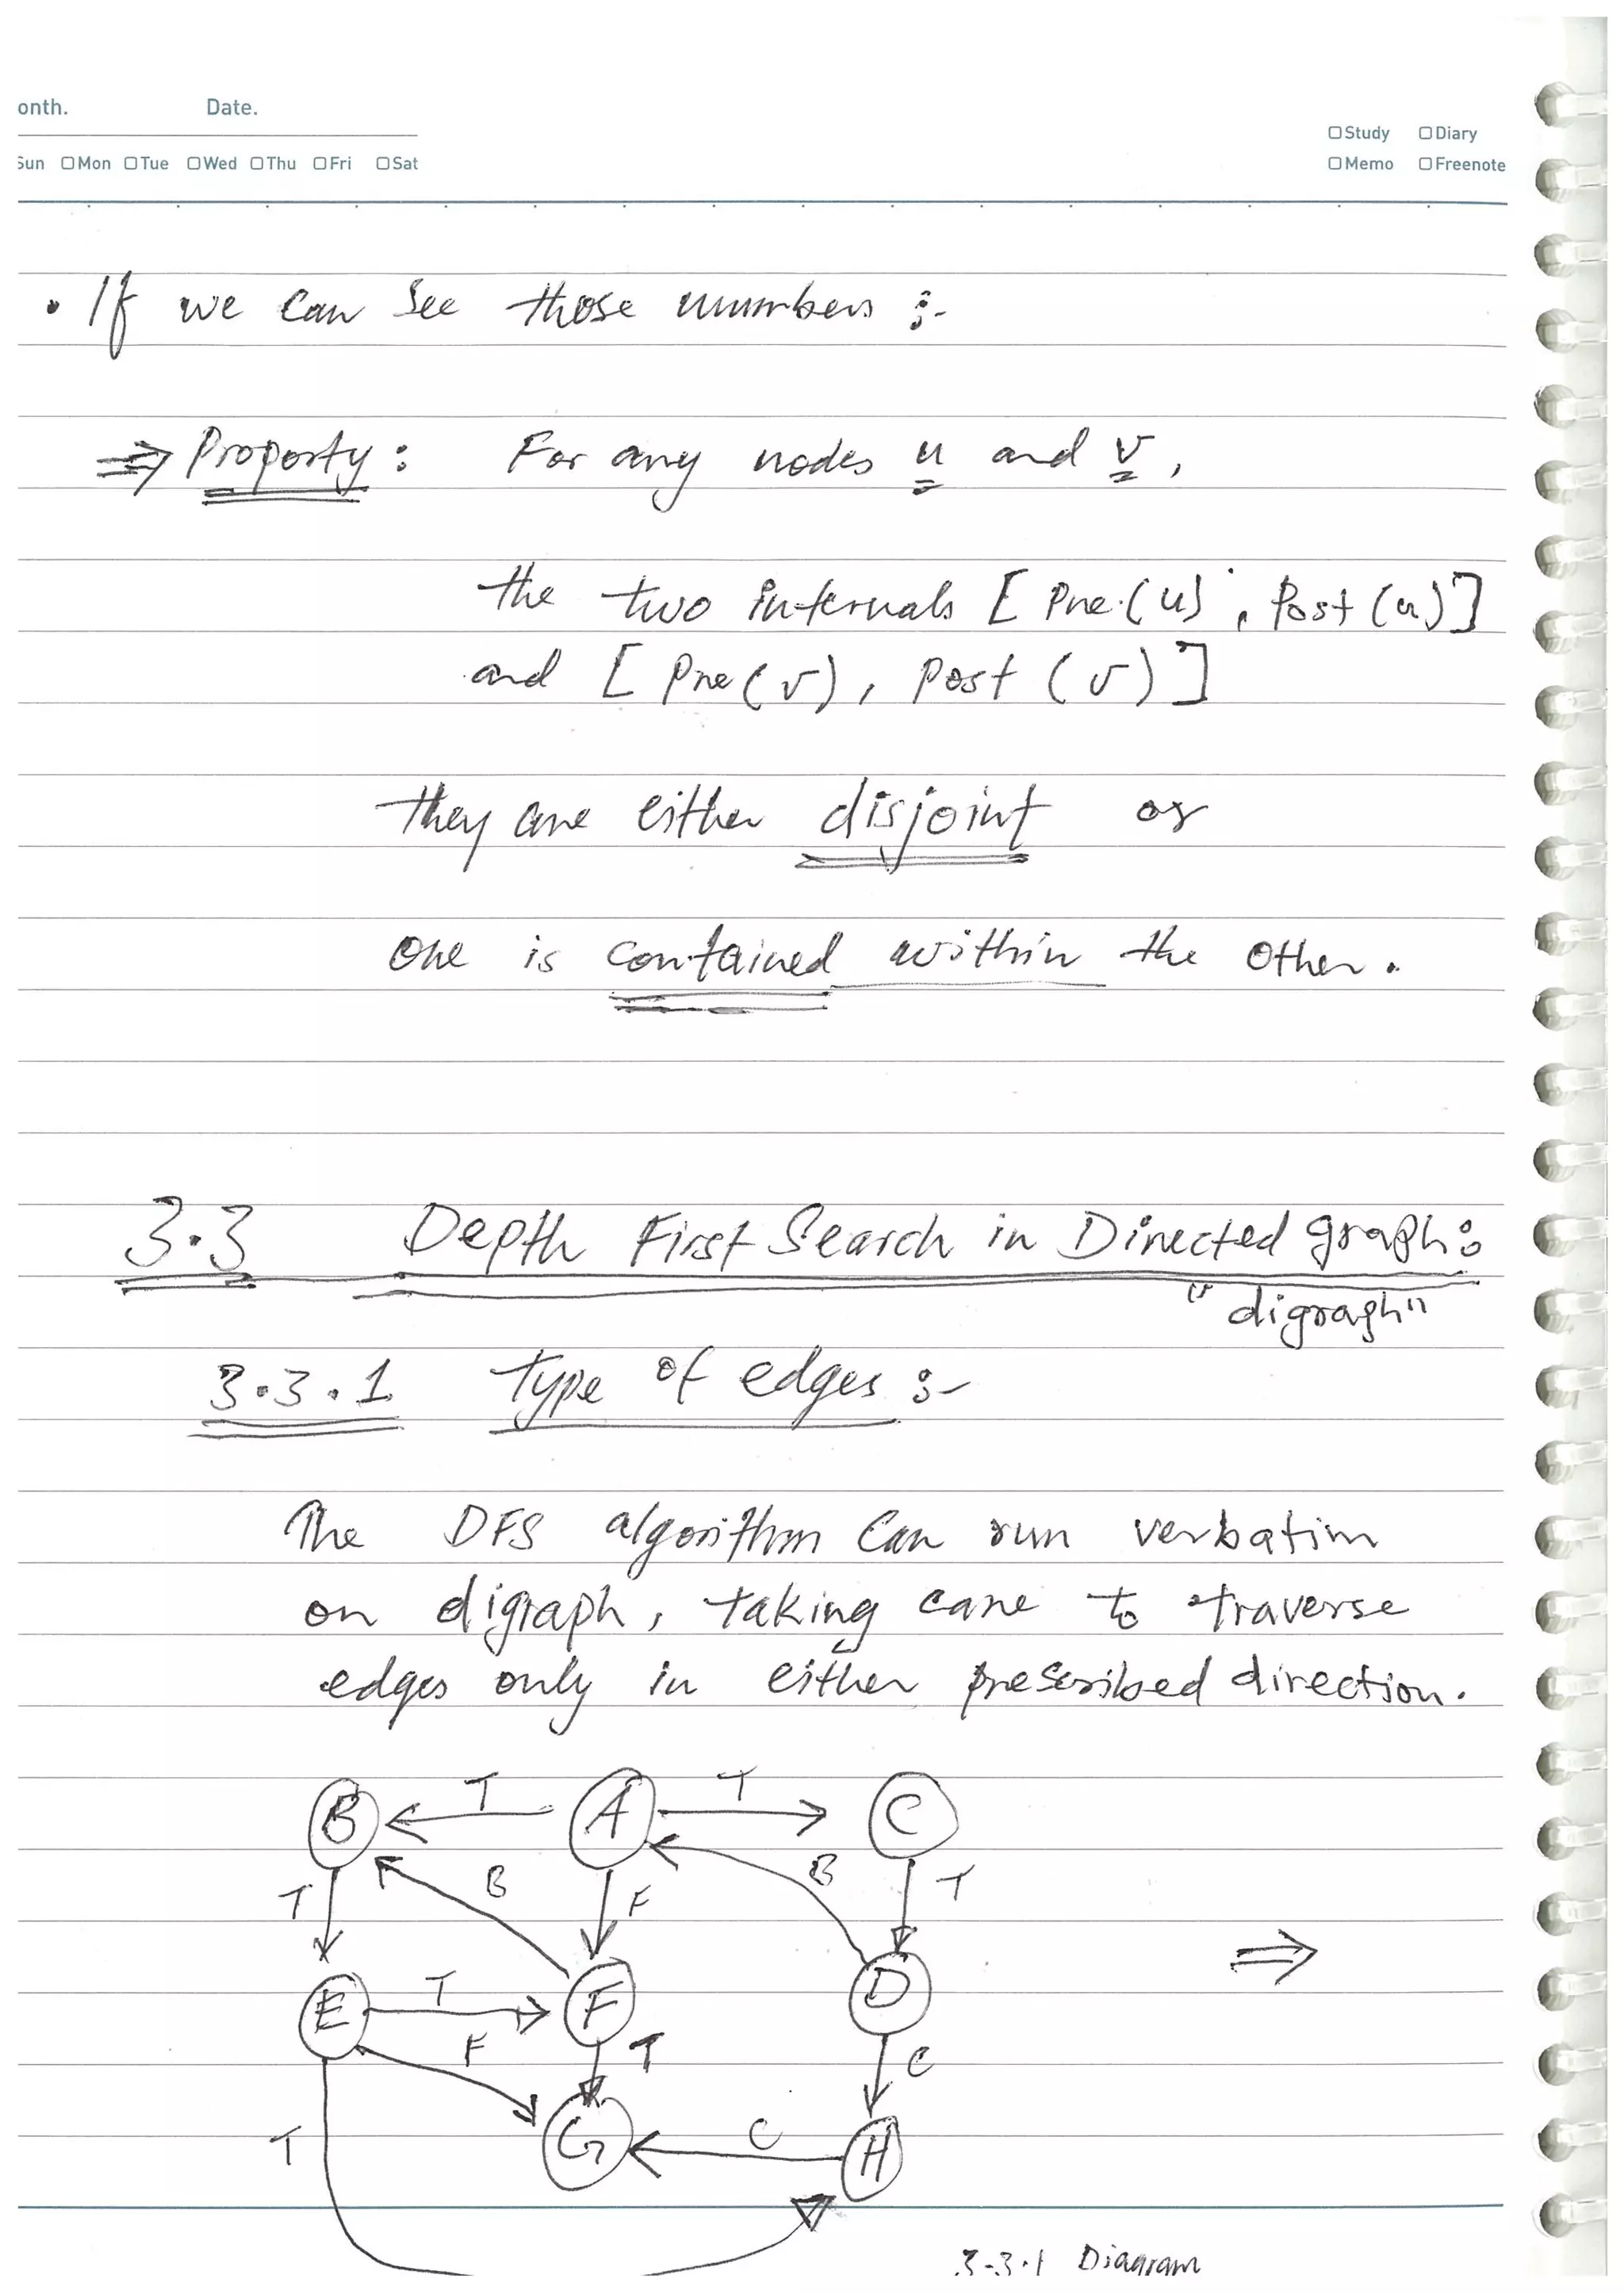 onth. Date.
Sun Mon Tue Wed Thu Fri Sat
Study Diary
Memo Freenote
• If we can see those numbers :-
⇒ Property: For any nodes u and v,
the two intervals [Pre(u), Post(u)]
and [Pre(v), Post(v)]
they are either disjoint or
one is contained within the other.
3.3 Depth First Search in Directed graph:
"digraph"
3.3.1 Type of edges :-
The DFS algorithm can run verbatim
on digraph, taking care to traverse
edges only in either prescribed direction.
B T A T C
T B F B T
E T F D
F T C
T G C H
⇒
3.3.1 Diagram